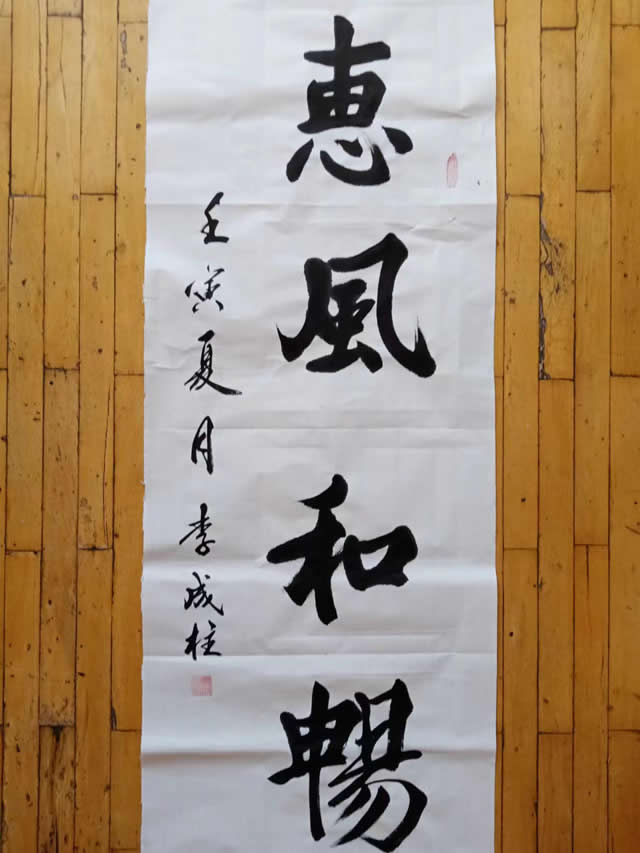 恵風和暢
壬寅夏月李成柱